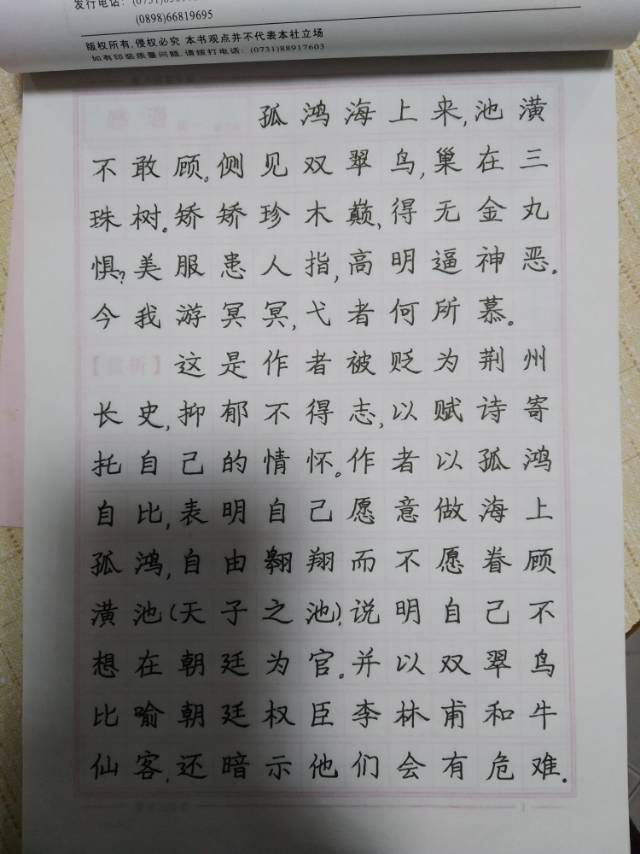 (0898)66819695
版权所有,侵权必究 本书观点并不代表本社立场
如有印装质量问题,请拨打电话:(0731)88917603
孤鸿海上来,池潢
不敢顾。侧见双翠鸟,巢在三
珠树。矫矫珍木巅,得无金丸
惧?美服患人指,高明逼神恶。
今我游冥冥,弋者何所慕。
这是作者被贬为荆州
长史,抑郁不得志,以赋诗寄
托自己的情怀。作者以孤鸿
自比,表明自己愿意做海上
孤鸿,自由翱翔而不愿眷顾
潢池(天子之池),说明自己不
想在朝廷为官。并以双翠鸟
比喻朝廷权臣李林甫和牛
仙客,还暗示他们会有危难。